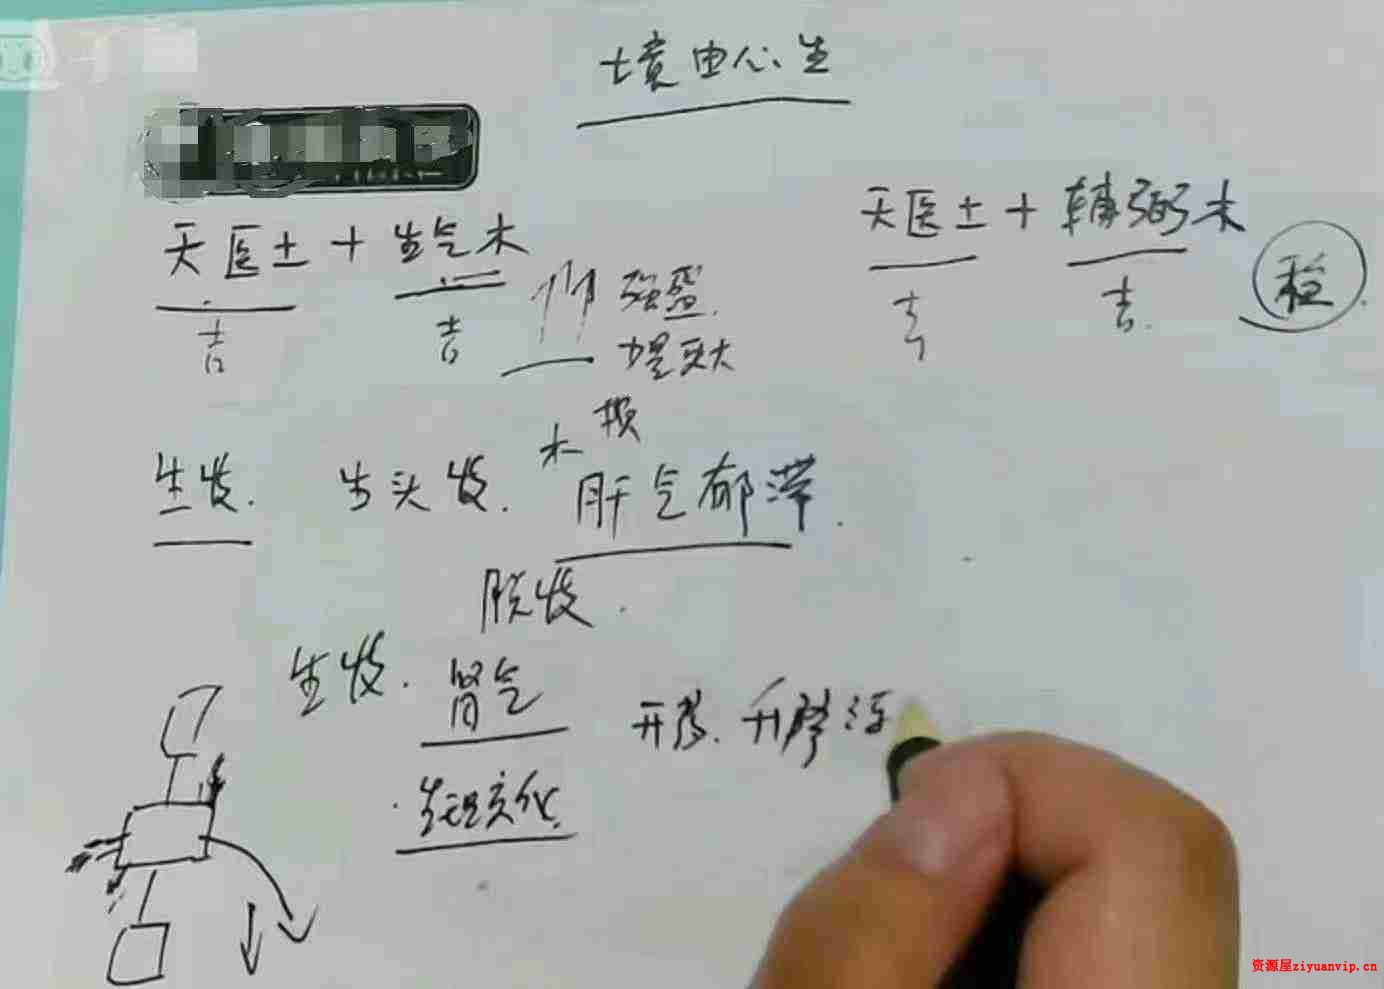 境由心生
天医土+生气木
吉 吉
强盛
天医土+辅弼木
吉 吉
稳
木 损
生发. 生头发. 肝气郁滞.
脱发.
生发. 肾气
生理变化.
资源屋ziyuanvip.cn